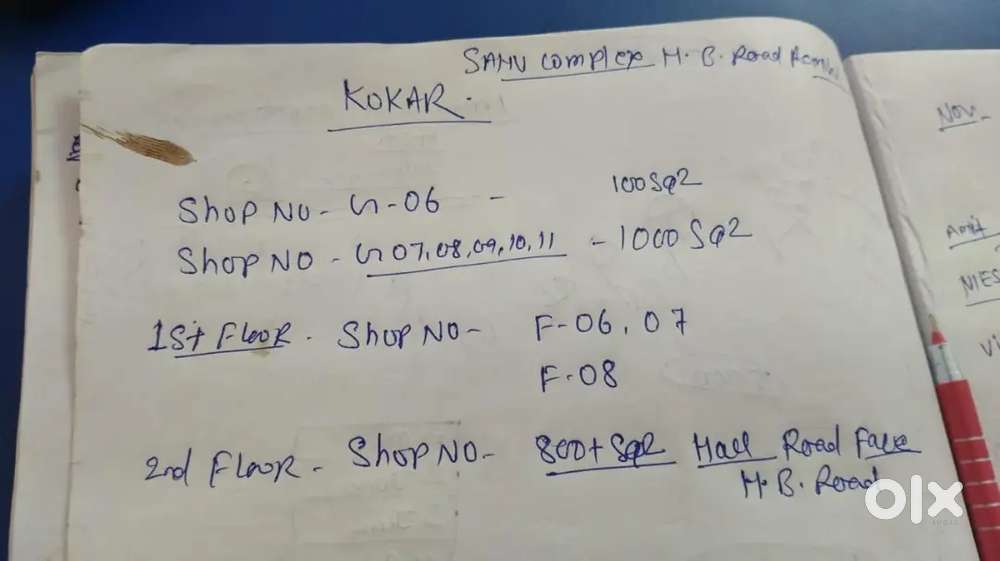 SAHU complex H. B. Road Ranchi
KOKAR.
Shop NO - G-06 - 100 Sq2
Shop NO - G 07, 08, 09, 10, 11 - 1000 Sq2
1st Floor - Shop NO - F-06, 07
F-08
2nd Floor - Shop NO - 800+ Sq2 Hall Road Face
H. B. Road
Nov-
Amit
NIES
Vi
olx